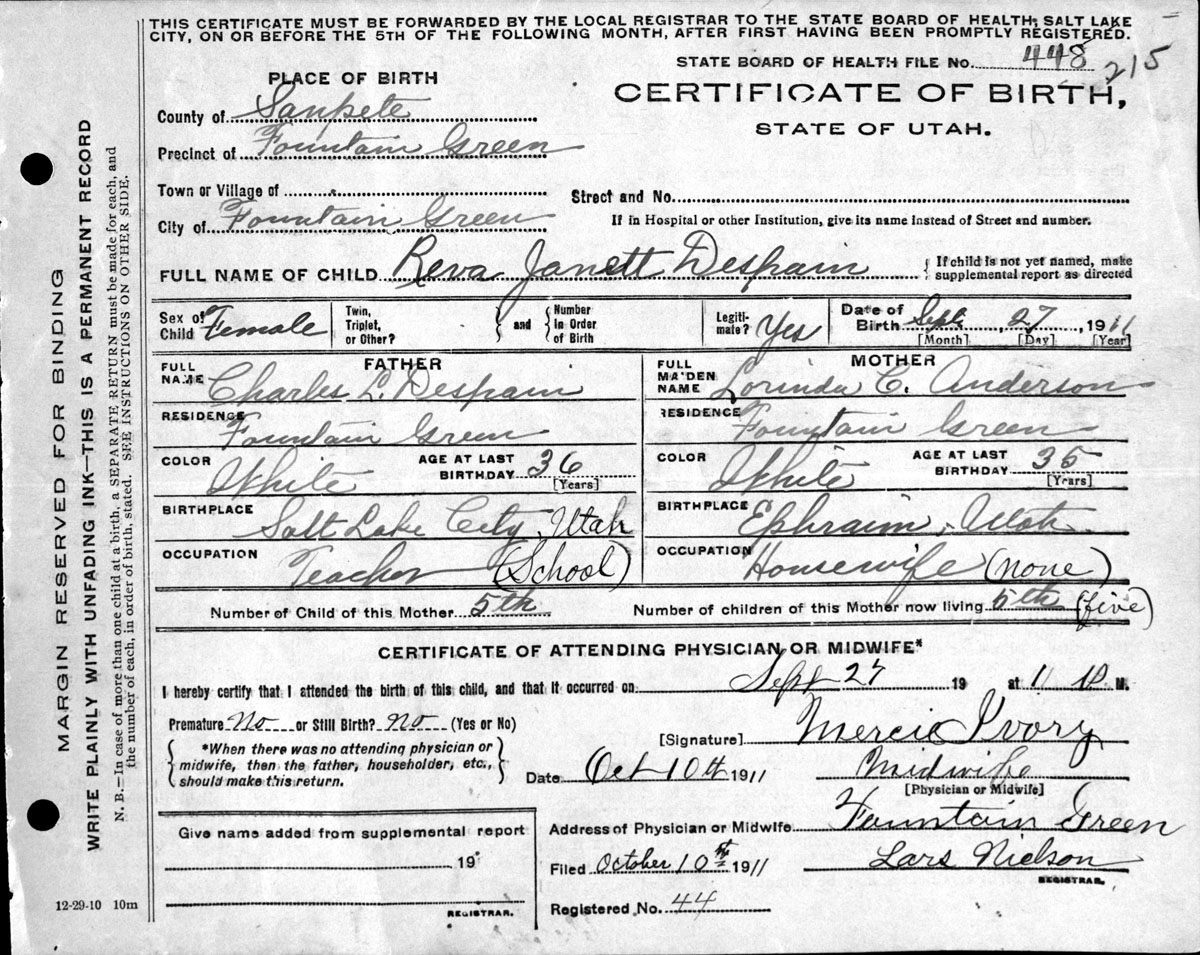 THIS CERTIFICATE MUST BE FORWARDED BY THE LOCAL REGISTRAR TO THE STATE BOARD OF HEALTH, SALT LAKE
CITY, ON OR BEFORE THE 5TH OF THE FOLLOWING MONTH, AFTER FIRST HAVING BEEN PROMPTLY REGISTERED.
STATE BOARD OF HEALTH FILE No. 448 215
PLACE OF BIRTH
CERTIFICATE OF BIRTH,
STATE OF UTAH.
County of Sanpete
Precinct of Fountain Green
Town or Village of
Street and No.
City of Fountain Green
If in Hospital or other Institution, give its name instead of Street and number.
FULL NAME OF CHILD Reva Janett Despain { If child is not yet named, make
supplemental report as directed
Sex of Child Female
Twin, Triplet, or Other? } and { Number in Order of Birth
Legitimate? Yes
Date of Birth Sept. , 27 , 1911
[Month] [Day] [Year]
FATHER
FULL NAME Charles L. Despain
RESIDENCE Fountain Green
COLOR White
AGE AT LAST BIRTHDAY 36
[Years]
BIRTHPLACE Salt Lake City, Utah
OCCUPATION Teacher (School)
MOTHER
FULL MAIDEN NAME Lorinda C. Anderson
RESIDENCE Fountain Green
COLOR White
AGE AT LAST BIRTHDAY 35
[Years]
BIRTHPLACE Ephraim, Utah.
OCCUPATION Housewife (none)
Number of Child of this Mother 5th
Number of children of this Mother now living 5th (five)
CERTIFICATE OF ATTENDING PHYSICIAN OR MIDWIFE*
I hereby certify that I attended the birth of this child, and that it occurred on Sept 27 19 at 11 P. M.
Premature No or Still Birth? No (Yes or No)
{ *When there was no attending physician or
midwife, then the father, householder, etc.,
should make this return. }
[Signature] Mercie Ivory
Date Oct 10th 1911
Midwife
[Physician or Midwife]
Give name added from supplemental report
19
REGISTRAR.
Address of Physician or Midwife Fountain Green
Filed October 10th 1911
Lars Nielson
REGISTRAR.
Registered No. 44
12-29-10 10m
MARGIN RESERVED FOR BINDING
WRITE PLAINLY WITH UNFADING INK—THIS IS A PERMANENT RECORD
N. B.—In case of more than one child at a birth, a SEPARATE RETURN must be made for each, and
the number of each, in order of birth, stated. SEE INSTRUCTIONS ON OTHER SIDE.